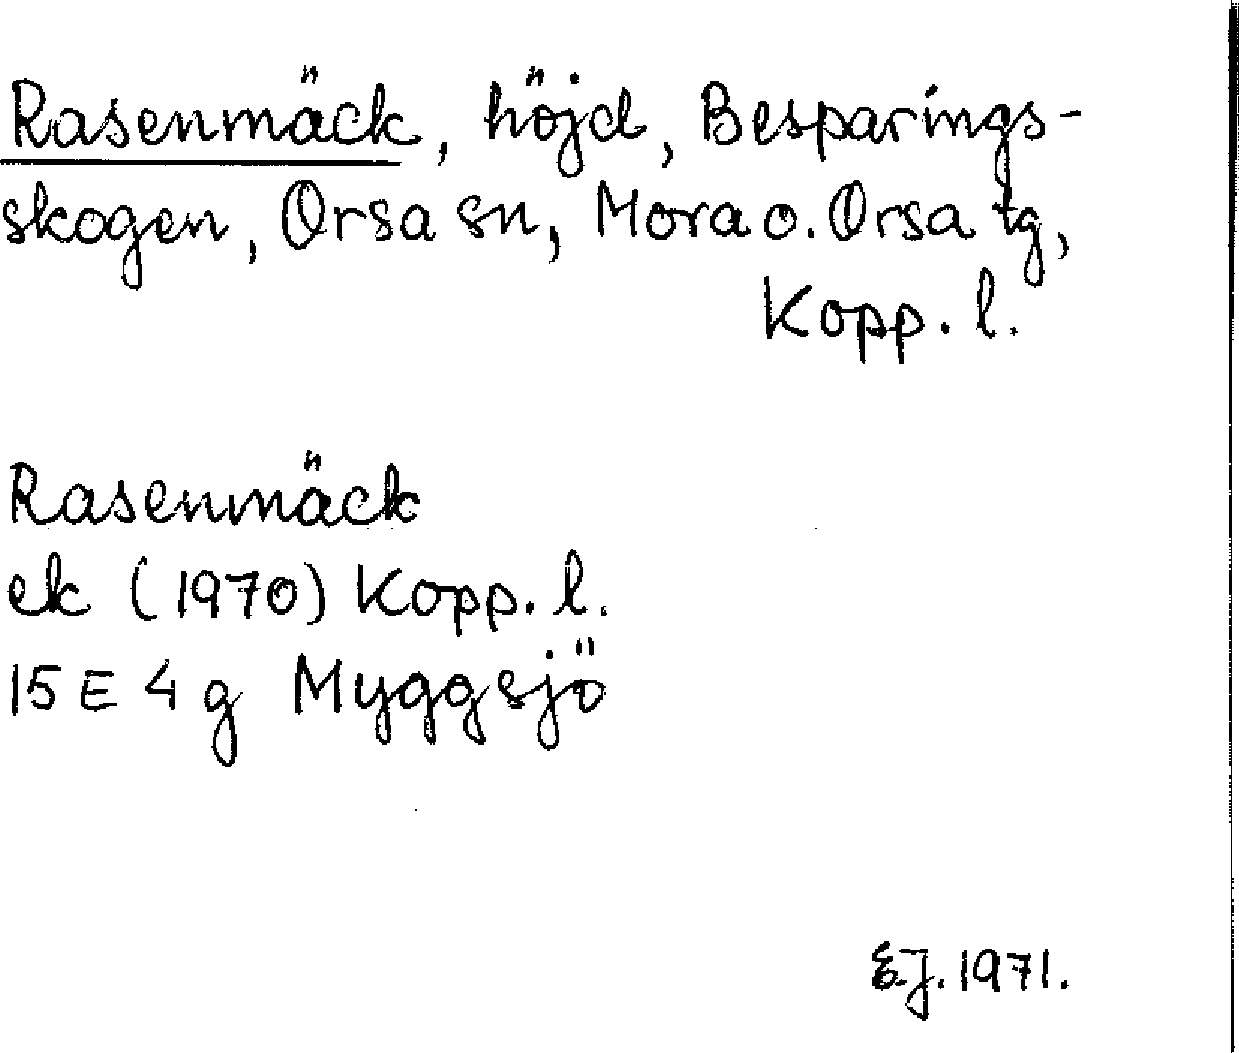 Rasenmäck, höjd, Besparings-
skogen, Orsa sn, Mora o. Orsa tg,
Kopp. l.
Rasenmäck
ek (1970) Kopp. l.
15 E 4 g Myggsjö
E.J. 1971.